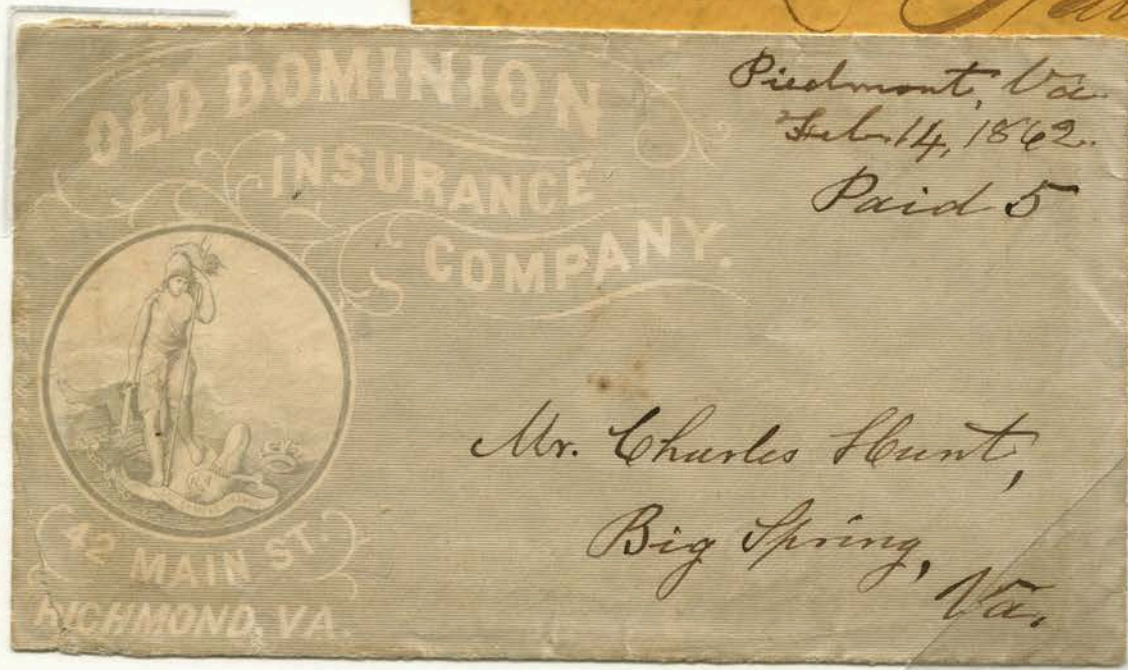 OLD DOMINION
INSURANCE
COMPANY.
42 MAIN ST.
RICHMOND, VA
Piedmont, Va
Feb. 14, 1862.
Paid 5
Mr. Charles Hunt,
Big Spring,
Va.